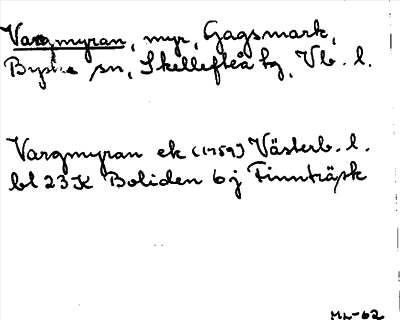 Vargmyran, myr, Gagsmark,
Byske sn, Skellefteå tg, Vb. l.
Vargmyran ek (1959) Västerb. l.
bl 23 K Boliden 6 j Finnträsk
ML-62